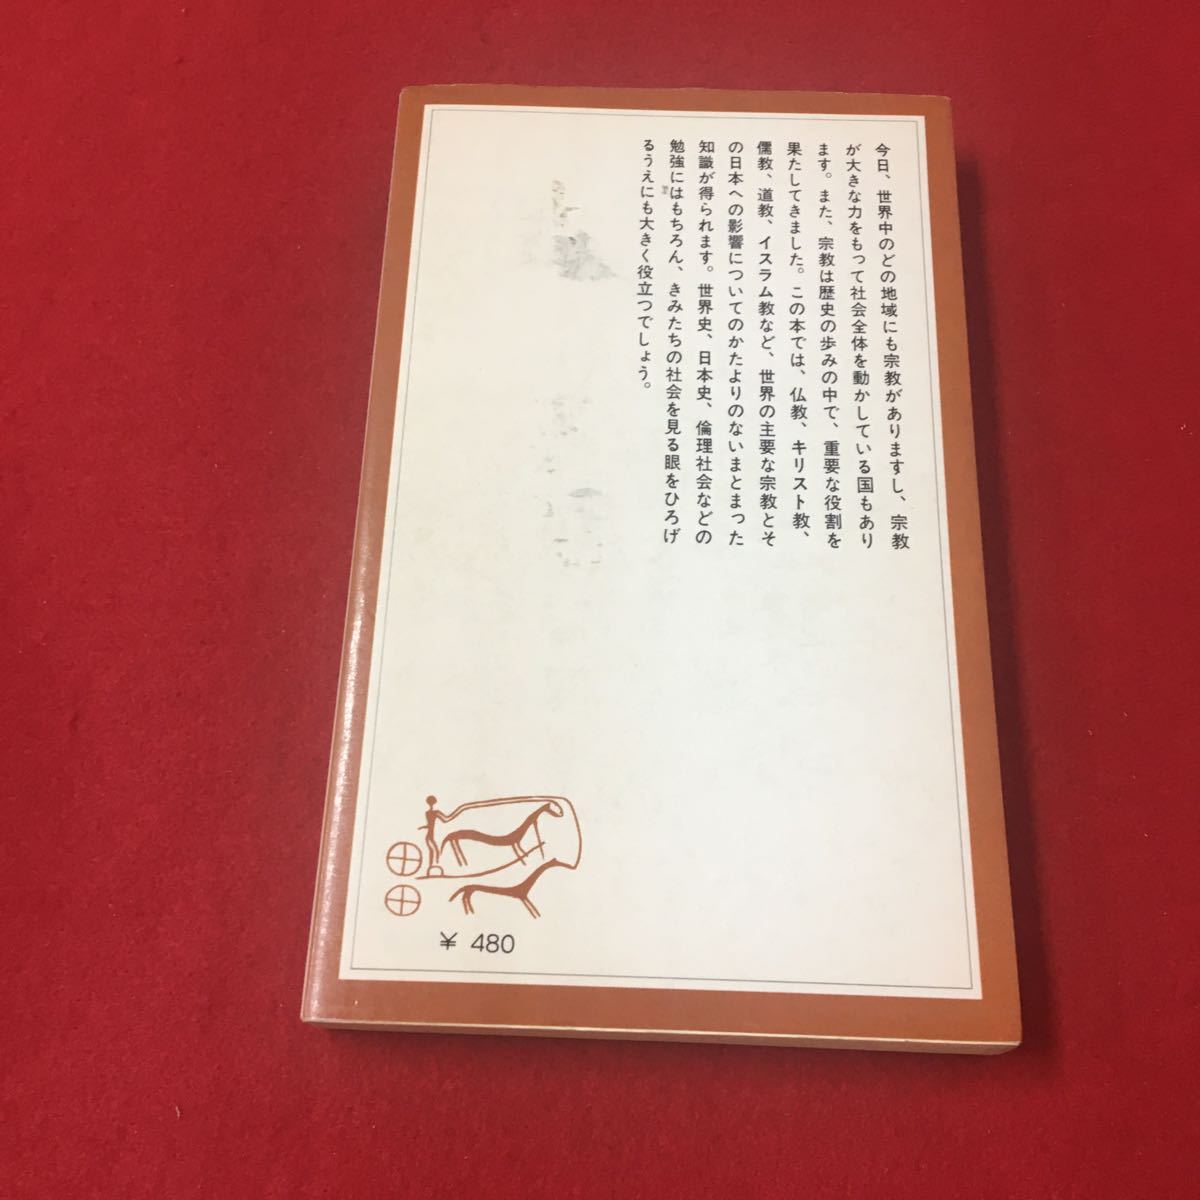 今日、世界中のどの地域にも宗教がありますし、宗教
が大きな力をもって社会全体を動かしている国もあり
ます。また、宗教は歴史の歩みの中で、重要な役割を
果たしてきました。この本では、仏教、キリスト教、
儒教、道教、イスラム教など、世界の主要な宗教とそ
の日本への影響についてのかたよりのないまとまった
知識が得られます。世界史、日本史、倫理社会などの
勉強にはもちろん、きみたちの社会を見る眼をひろげ
るうえにも大きく役立つでしょう。
¥ 480